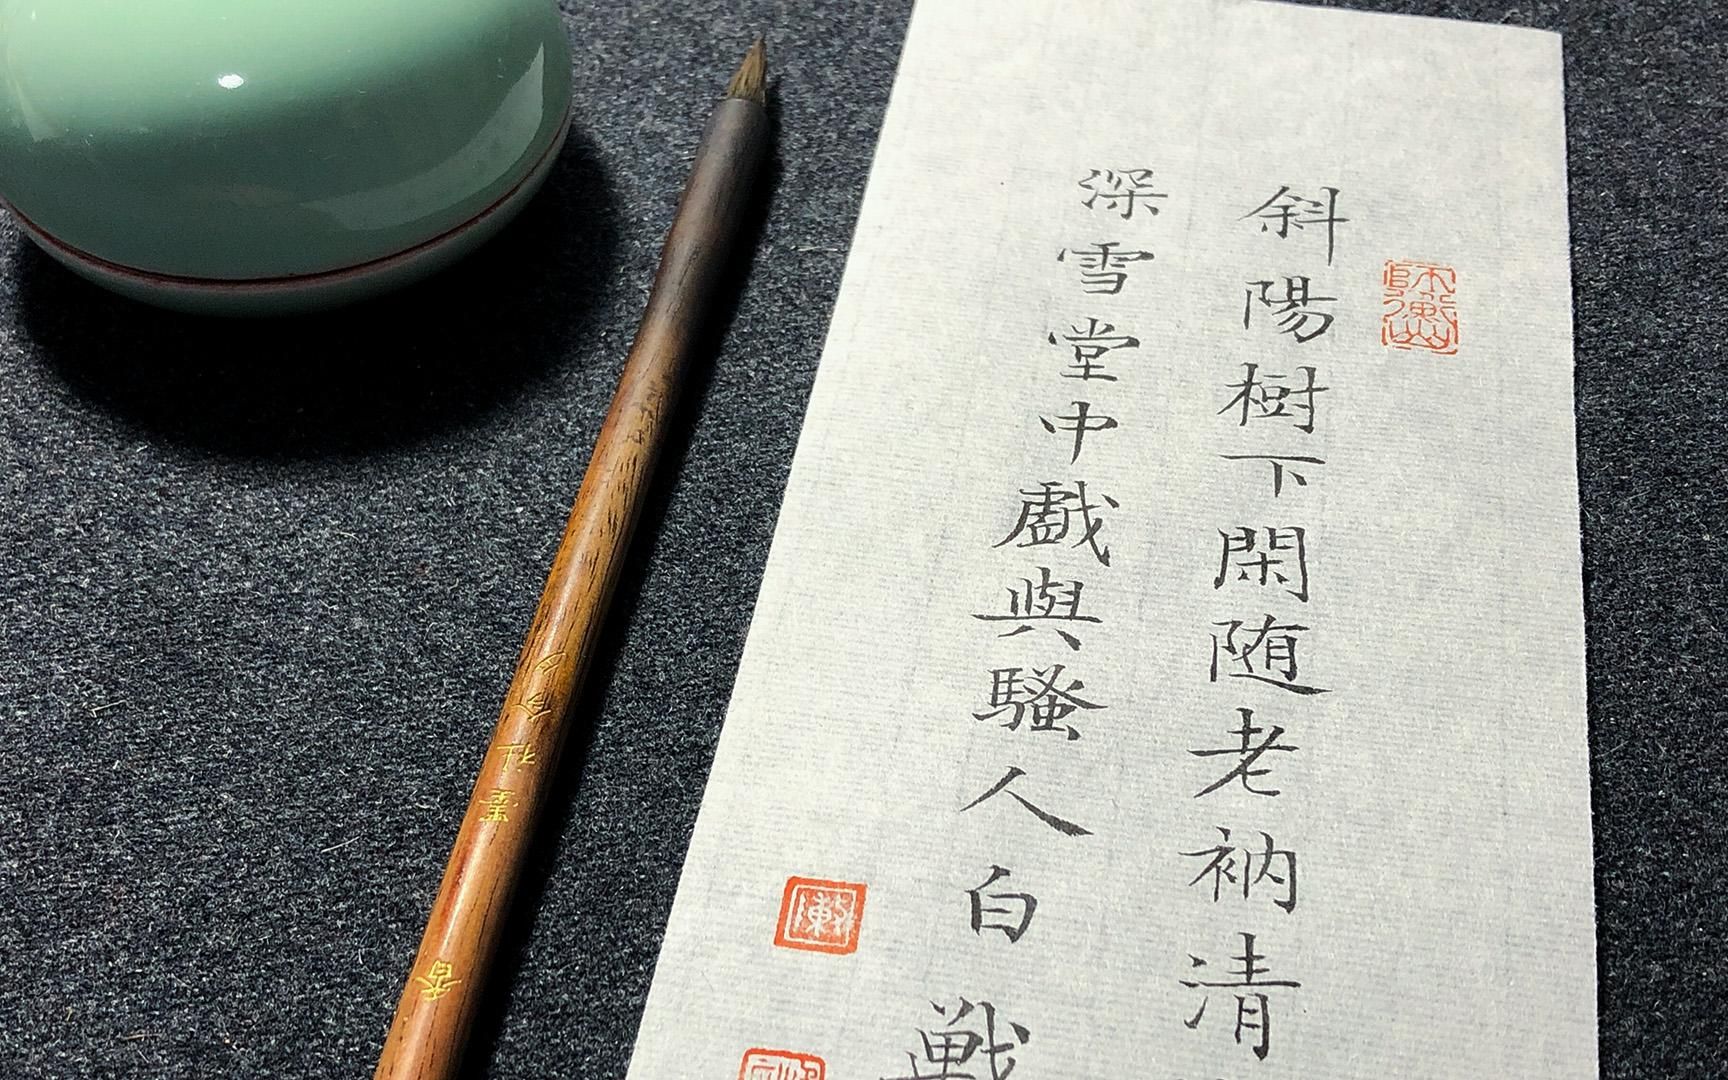 斜陽樹下閑随老衲清
深雪堂中戲與騷人白戰